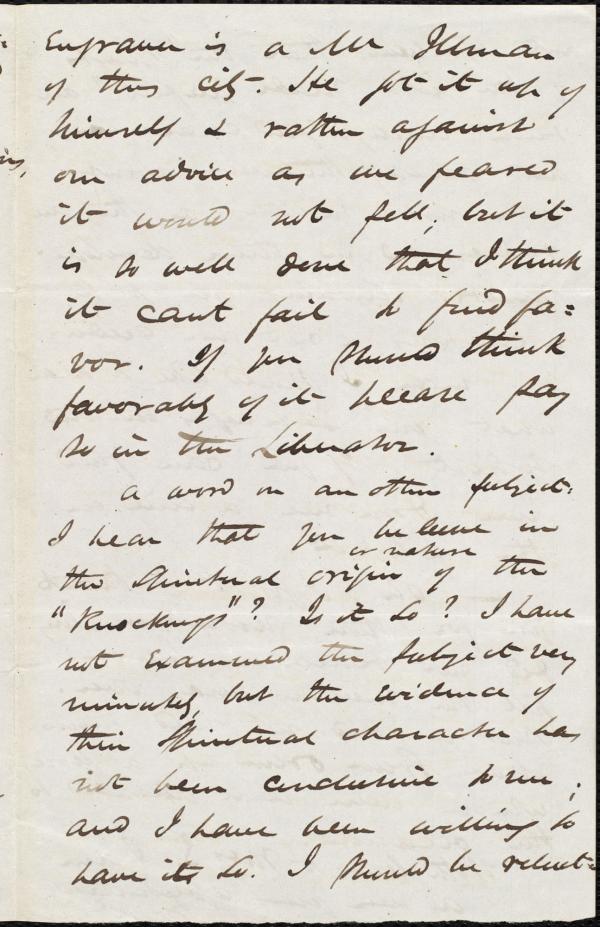 Engraver is a Mr Illman
of this city. He got it up of
himself & rather against
our advice as we feared
it would not sell; but it
is so well done that I think
it cant fail to find fa=
vor. If you should think
favorably of it please say
so in the Liberator.
a word on another subject:
I hear that you believe in
or nature
the Spiritual origin of the
"Knockings"? Is it so? I have
not examined the subject very
minutely, but the evidence of
their Spiritual character has
not been conclusive to me;
and I have been willing to
have it so. I should be reluct=